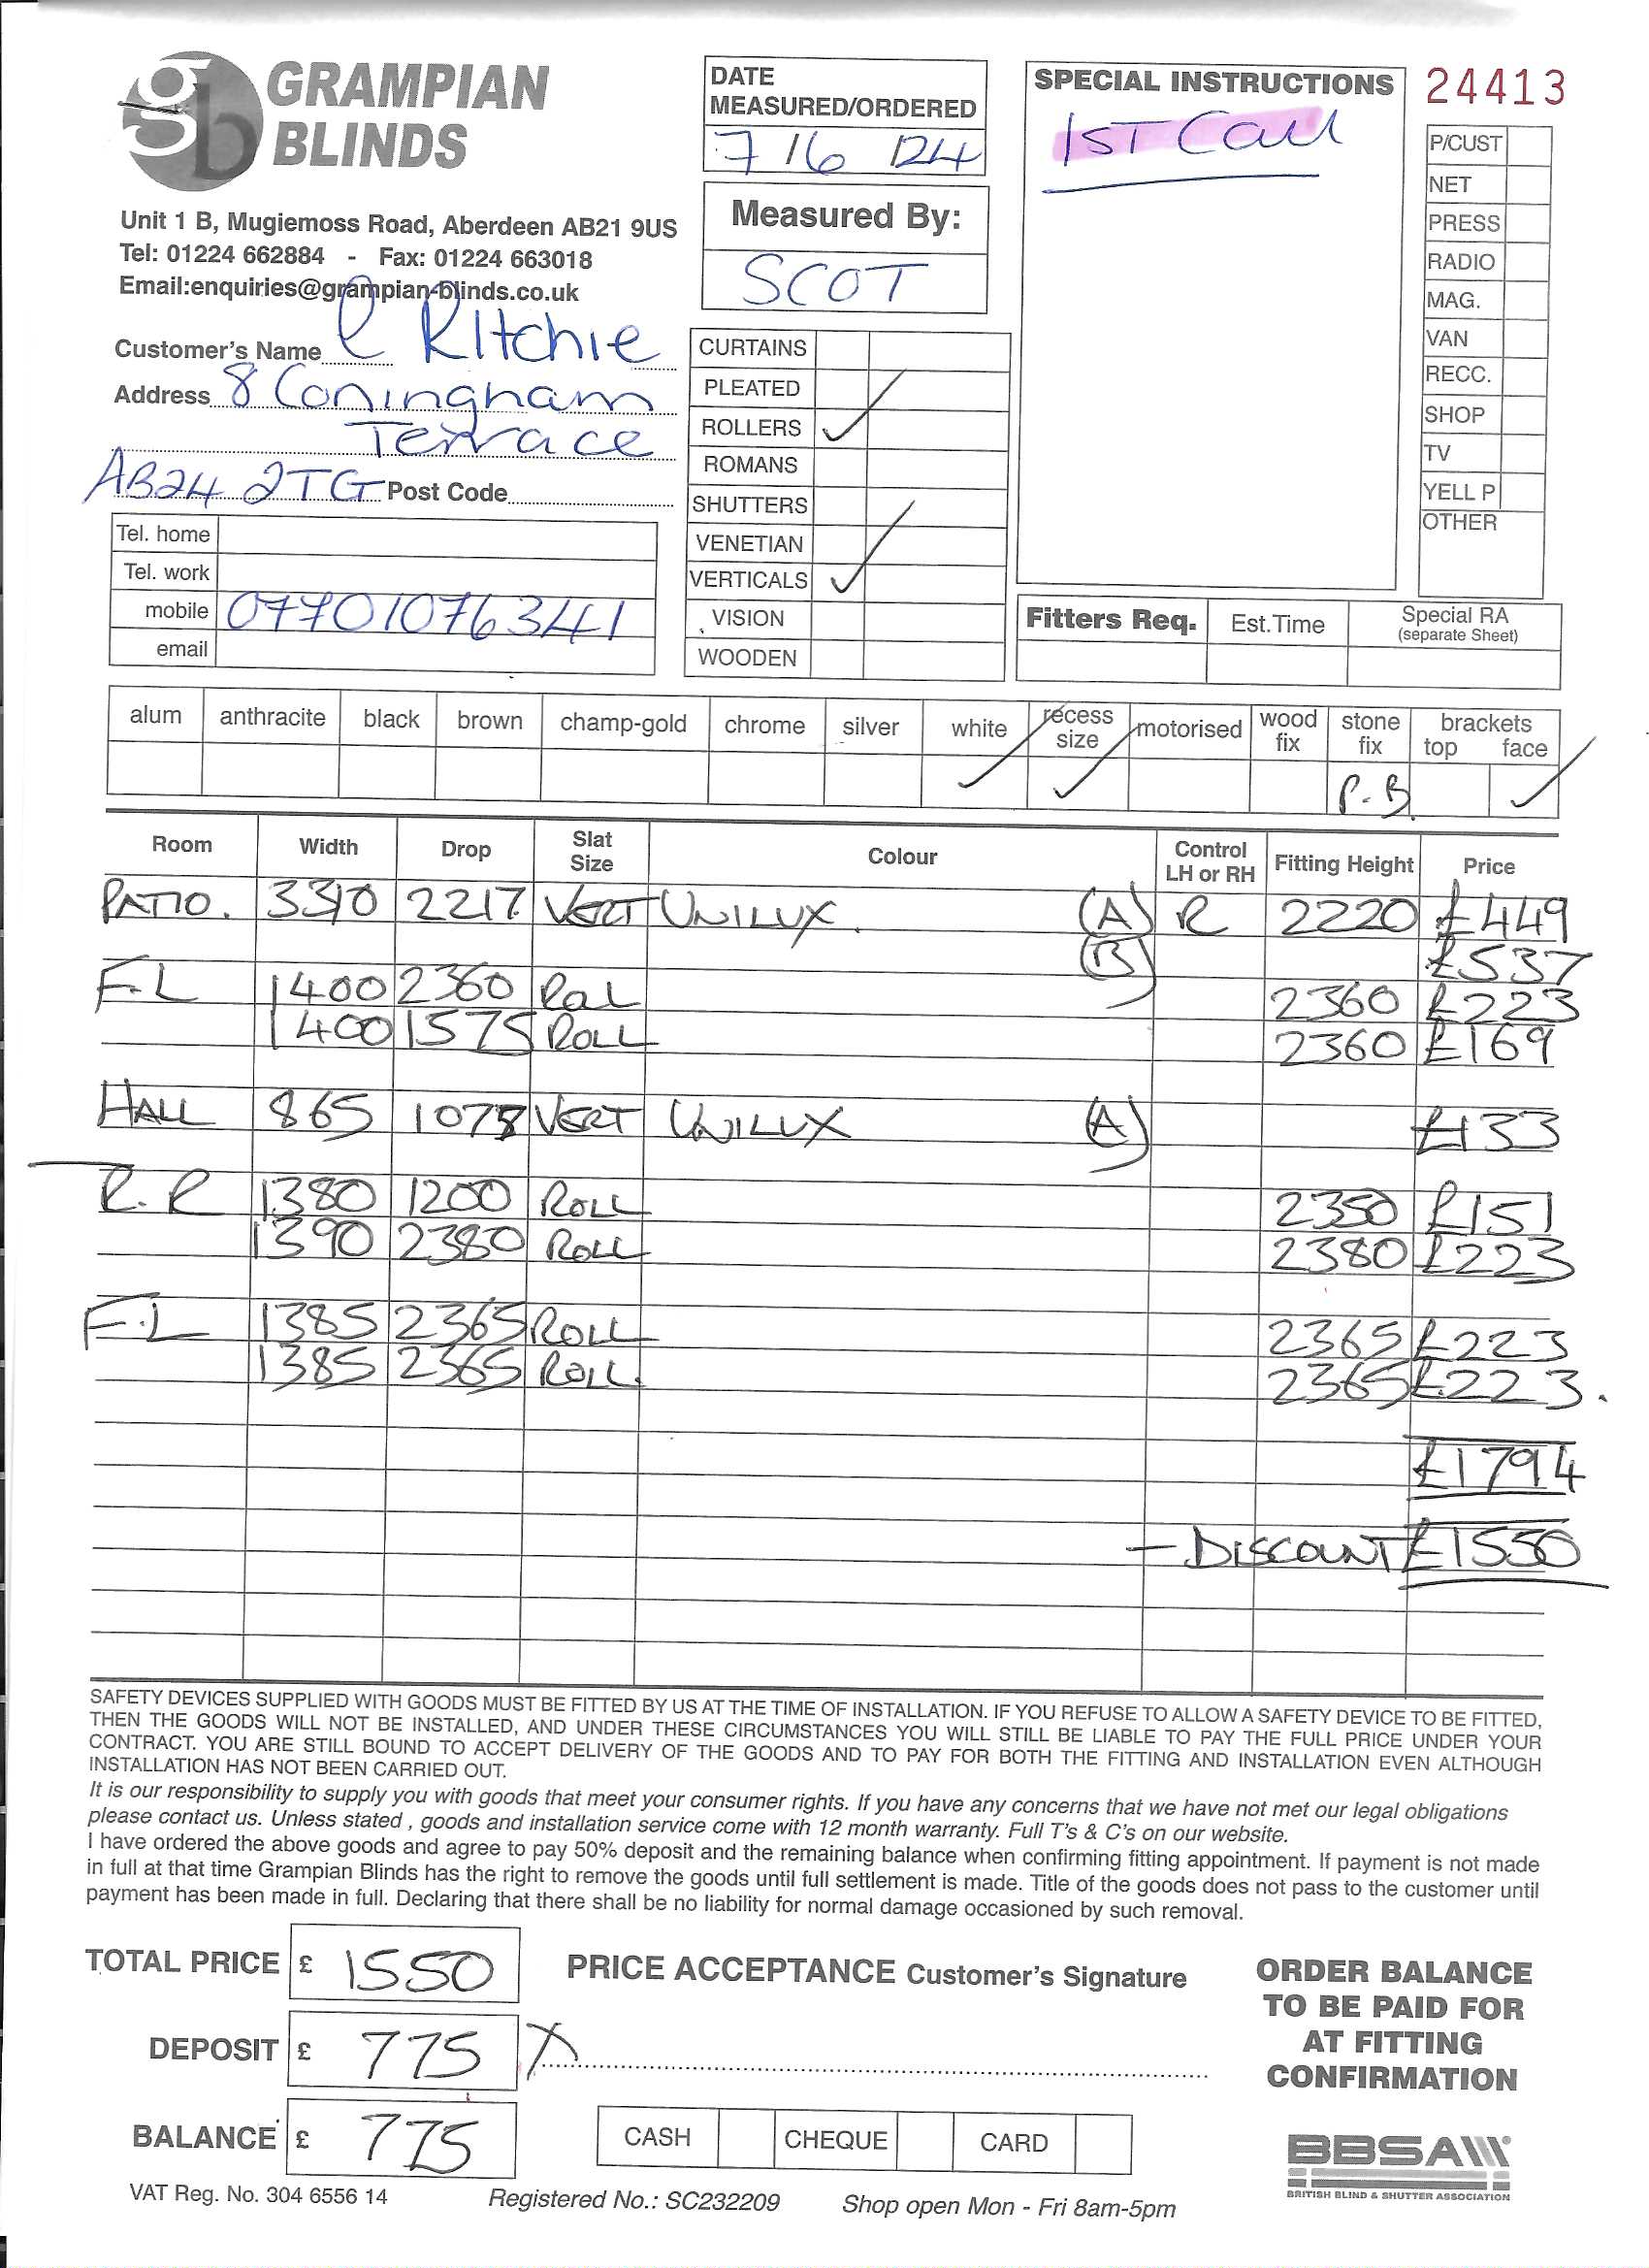 gb GRAMPIAN BLINDS
Unit 1 B, Mugiemoss Road, Aberdeen AB21 9US
Tel: 01224 662884 - Fax: 01224 663018
Email:enquiries@grampian-blinds.co.uk
Customer's Name C Ritchie
Address 8 Coningham
Terrace
AB24 2TG Post Code
Tel. home
Tel. work
mobile 07701076341
email
DATE
MEASURED/ORDERED
7/6/24
Measured By:
SCOT
CURTAINS
PLEATED
ROLLERS ✓
ROMANS
SHUTTERS
VENETIAN
VERTICALS ✓
VISION
WOODEN
SPECIAL INSTRUCTIONS
1ST Call
24413
P/CUST
NET
PRESS
RADIO
MAG.
VAN
RECC.
SHOP
TV
YELL P
OTHER
Fitters Req. Est.Time Special RA
(separate Sheet)
alum anthracite black brown champ-gold chrome silver white recess size motorised wood fix stone fix brackets top face
✓ ✓ P.B. ✓
Room Width Drop Slat Size Colour Control LH or RH Fitting Height Price
PATIO. 3310 2217 VERT UNILUX. (A) R 2220 £449
(B) £537
F.L 1400 2360 Roll 2360 £223
1400 1575 ROLL 2360 £169
HALL 865 1078 VERT UNILUX (A) £133
R.R 1380 1200 ROLL 2350 £151
1390 2380 ROLL 2380 £223
F.L 1385 2365 ROLL 2365 £223
1385 2365 ROLL. 2365 £223.
£1794
- DISCOUNT £1550
SAFETY DEVICES SUPPLIED WITH GOODS MUST BE FITTED BY US AT THE TIME OF INSTALLATION. IF YOU REFUSE TO ALLOW A SAFETY DEVICE TO BE FITTED,
THEN THE GOODS WILL NOT BE INSTALLED, AND UNDER THESE CIRCUMSTANCES YOU WILL STILL BE LIABLE TO PAY THE FULL PRICE UNDER YOUR
CONTRACT. YOU ARE STILL BOUND TO ACCEPT DELIVERY OF THE GOODS AND TO PAY FOR BOTH THE FITTING AND INSTALLATION EVEN ALTHOUGH
INSTALLATION HAS NOT BEEN CARRIED OUT.
It is our responsibility to supply you with goods that meet your consumer rights. If you have any concerns that we have not met our legal obligations
please contact us. Unless stated , goods and installation service come with 12 month warranty. Full T's & C's on our website.
I have ordered the above goods and agree to pay 50% deposit and the remaining balance when confirming fitting appointment. If payment is not made
in full at that time Grampian Blinds has the right to remove the goods until full settlement is made. Title of the goods does not pass to the customer until
payment has been made in full. Declaring that there shall be no liability for normal damage occasioned by such removal.
TOTAL PRICE £ 1550
DEPOSIT £ 775
BALANCE £ 775
PRICE ACCEPTANCE Customer's Signature
X
CASH CHEQUE CARD
ORDER BALANCE
TO BE PAID FOR
AT FITTING
CONFIRMATION
BBSA
BRITISH BLIND & SHUTTER ASSOCIATION
VAT Reg. No. 304 6556 14 Registered No.: SC232209 Shop open Mon - Fri 8am-5pm